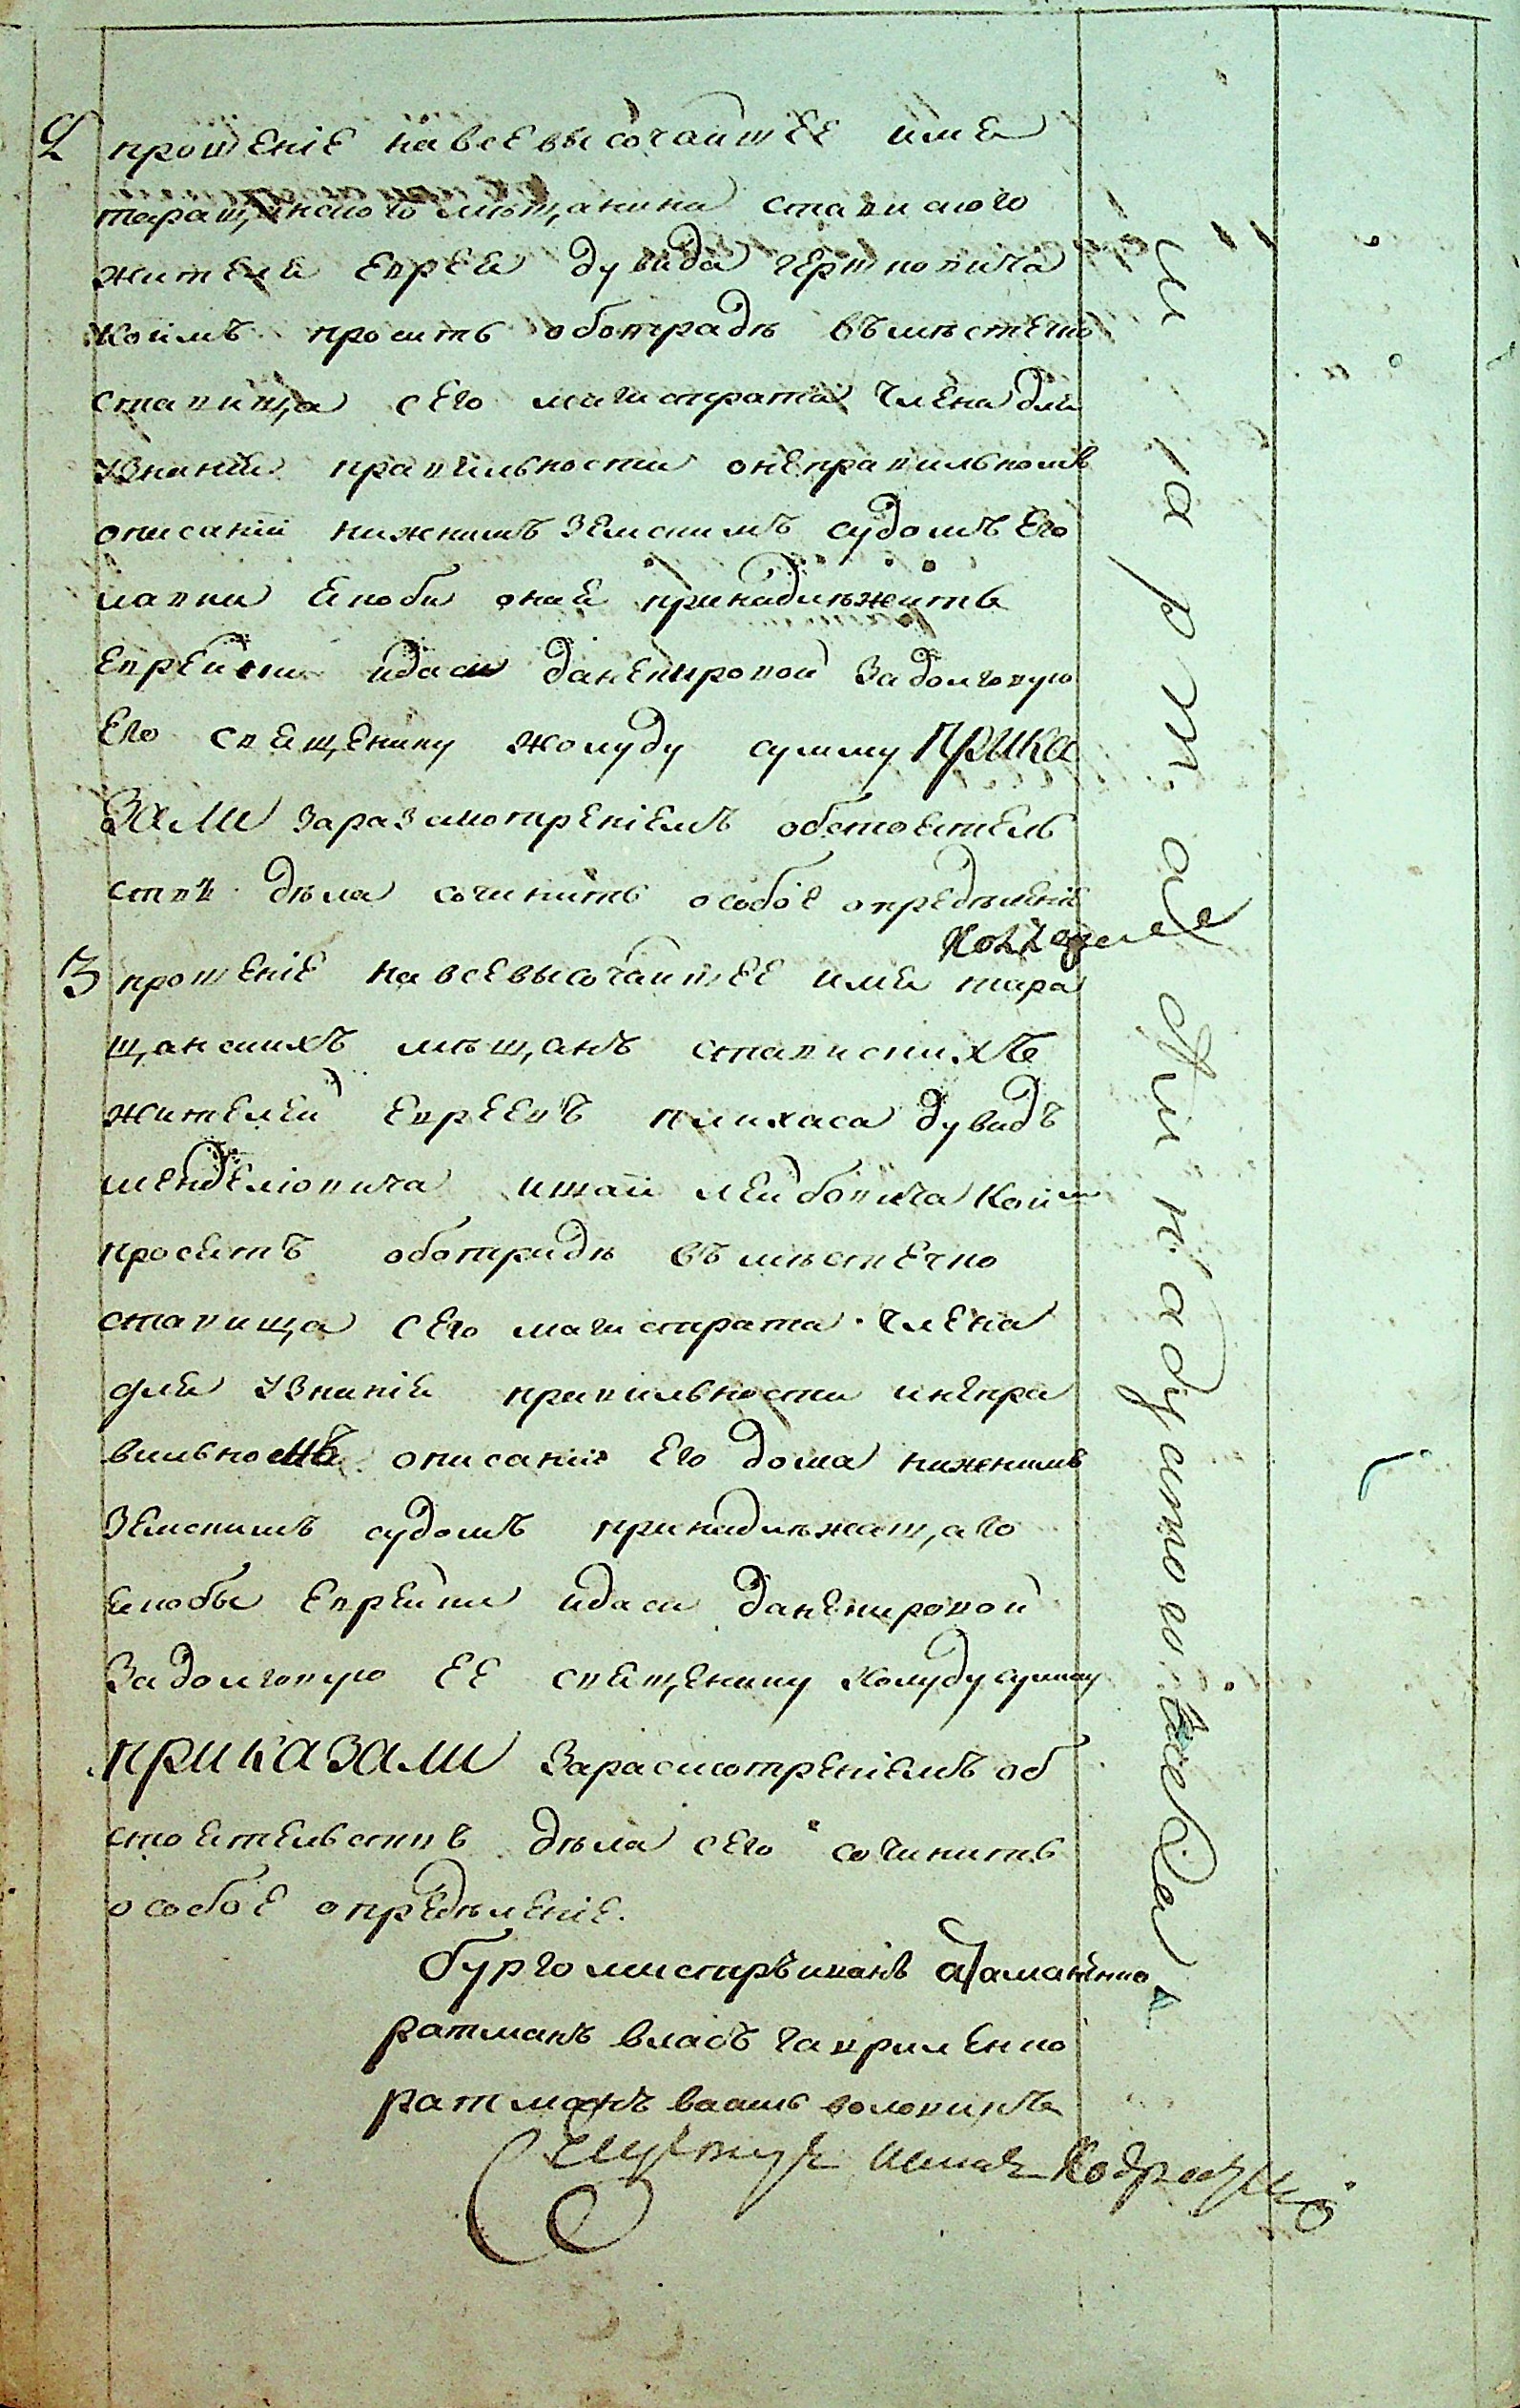 2 прошеніе на всевысочайшее имя
таращанского мѣщанина ставиского
жителя еврея дувида гершковича
коимъ проситъ оботрядѣ въ мѣстечко
ставища сего магистрата члена для
узнанія правильности онеправильномъ
описаніи нижнимъ земскимъ судомъ его
лавки якоби оная принадлѣжитъ
еврейки идаси данекировой за долговую
его священику жолуду сумму прика
зали заразсмотреніемъ обстоятель
ствъ дѣла сочинить особое опредѣленіе
3 прошеніе на всевысочайшее имя тара
щанскихъ мѣщанъ ставискихъ
жителей евреевъ пинхаса дувидъ
мендельовича ицкаи лейбовича коим
проситъ оботрядѣ въ мѣстечко
ставища сего магистрата члена
для узнанія правильности инепра
вильность описаніи его дома нижнимъ
земскимъ судомъ принадлѣжащаго
якобы еврейки идаси данекировой
за долговую ее священику жолуду сумму
приказали зарасмотреніемъ об
стоятельствъ дѣла сего сочинить
особое опредѣленіе.
бургомистръ иванъ атаманенко
ратманъ власъ гавриленко
ратманъ василь головинъ
марта